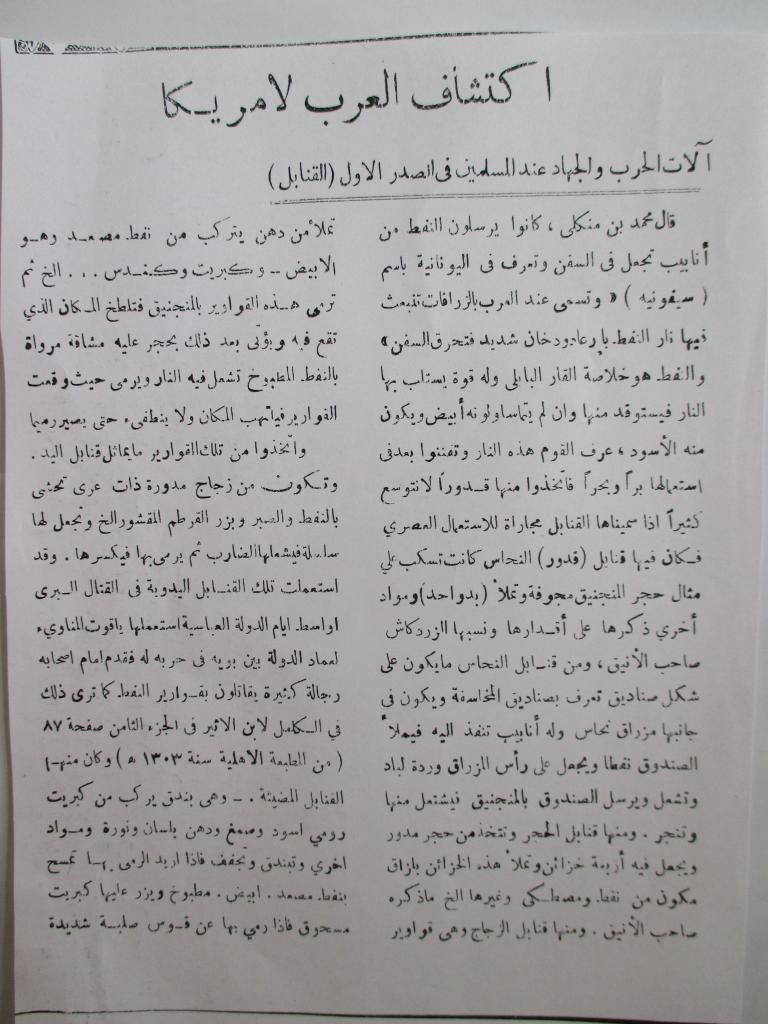 اكتشاف العرب لامريكا
آلات الحرب والجهاد عند المسلمين فى الصدر الاول (القنابل)
قال محمد بن منكلى ، كانوا يرسلون النفط من
أنابيب تجعل فى السفن وتعرف فى اليونانية باسم
( سيفونيه ) « وتسمى عند العرب بالزرافات تنبعث
فيها نار النفط بارعاد ودخان شديد فتحرق السفن »
والنفط هو خلاصة القار البابلى وله قوة يستلب بها
النار فيستوقد منها وان لم يتماسا ولونه أبيض ويكون
منه الأسود ، عرف القوم هذه النار وتفننوا بعد فى
استعمالها براً وبحراً فاتخذوا منها قدوراً لانتوسع
كثيراً اذا سميناها القنابل مجاراة للاستعمال العصري
فكان فيها قنابل (قدور) النحاس كانت تسكب على
مثال حجر المنجنيق مجوفة وتملأ (بدواحد) ومواد
أخري ذكرها على أقدارها ونسبها الزردكاش
صاحب الأنيق ، ومن قنابل النحاس مايكون على
شكل صناديق تعرف بصناديق المخاسفة ويكون فى
جانبها مزراق نحاس وله أنابيب تنفذ اليه فيملأ
الصندوق نفطا ويجعل على رأس المزراق وردة لباد
وتشعل ويرسل الصندوق بالمنجنيق فيشتعل منها
وتنجر . ومنها قنابل الحجر وتتخذ من حجر مدور
ويجعل فيه أربعة خزائن وتملأ هذه الخزائن بازاق
مكون من نفط ومصطكى وغيرها الخ ماذكره
صاحب الأنيق . ومنها قنابل الزجاج وهى قوارير
تملأ من دهن يتركب من نفط مصعد وهو
الابيض ـ وكبريت وكندس . . . الخ ثم
ترمى هذه القوارير بالمنجنيق فتلطخ المكان الذي
تقع فيه ويؤتى بعد ذلك بحجر عليه مشاقة مرواة
بالنفط المطبوخ تشعل فيه النار ويرمى حيث وقعت
القوارير فيلتهب المكان ولا ينطفىء حتى يصير رميما
واتخذوا من تلك القوارير مايماثل قنابل اليد .
وتكون من زجاج مدورة ذات عرى تحشى
بالنفط والصبر وبزر القرطم المقشور الخ وتجعل لها
سلسلة فيشعلها الضارب ثم يرمى بها فيكسرها . وقد
استعملت تلك القنابل اليدوية فى القتال البرى
اواسط ايام الدولة العباسية استعملها ياقوت المناوىء
لعماد الدولة بن بويه فى حربه له فقدم امام اصحابه
رجالة كثيرة يقاتلون بقوارير النفط كما ترى ذلك
في الكامل لابن الاثير فى الجزء الثامن صفحة ٨٧
( من الطبعة الاهلية سنة ١٣٠٣ ه ) وكان منها
القنابل المضيئة . ـ وهى بندق يركب من كبريت
رومي اسود وصمغ ودهن بلسان ونورة ومواد
اخري وتبندق وتجفف فاذا اريد الرمى بها تمسح
بنفط مصعد . ابيض . مطبوخ ويزر عليها كبريت
مسحوق فاذا رمي بها عن قوس صلبة شديدة